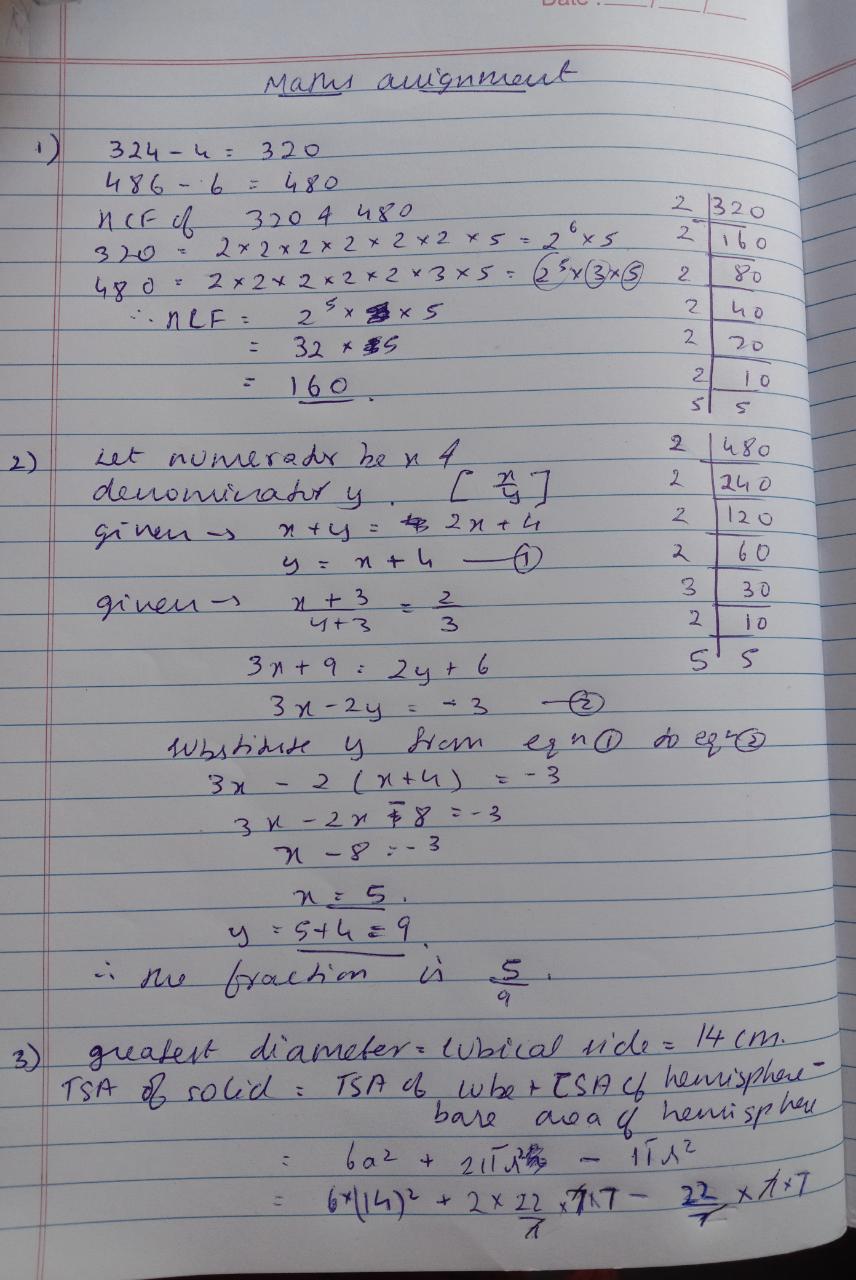 Date :
Maths assignment
1) 324 - 4 = 320
486 - 6 = 480
HCF of 320 & 480
320 = 2 × 2 × 2 × 2 × 2 × 2 × 5 = 2⁶ × 5
480 = 2 × 2 × 2 × 2 × 2 × 3 × 5 = 2⁵ × 3 × 5
∴ HCF = 2⁵ × 5
= 32 × 5
= 160.
2 | 320
2 | 160
2 | 80
2 | 40
2 | 20
2 | 10
5 | 5
2) Let numerator be x &
denominator y. [x/y]
given → x + y = 2x + 4
y = x + 4 — ①
given → (x + 3)/(y + 3) = 2/3
3x + 9 = 2y + 6
3x - 2y = -3 — ②
substitute y from eqn ① to eqn ②
3x - 2 (x + 4) = -3
3x - 2x - 8 = -3
x - 8 = -3
x = 5.
y = 5 + 4 = 9.
∴ the fraction is 5/9.
2 | 480
2 | 240
2 | 120
2 | 60
3 | 30
2 | 10
5 | 5
3) greatest diameter = cubical side = 14 cm.
TSA of solid = TSA of cube + CSA of hemisphere -
base area of hemisphere
= 6a² + 2πr² - πr²
= 6 × (14)² + 2 × 22/7 × 7 × 7 - 22/7 × 7 × 7